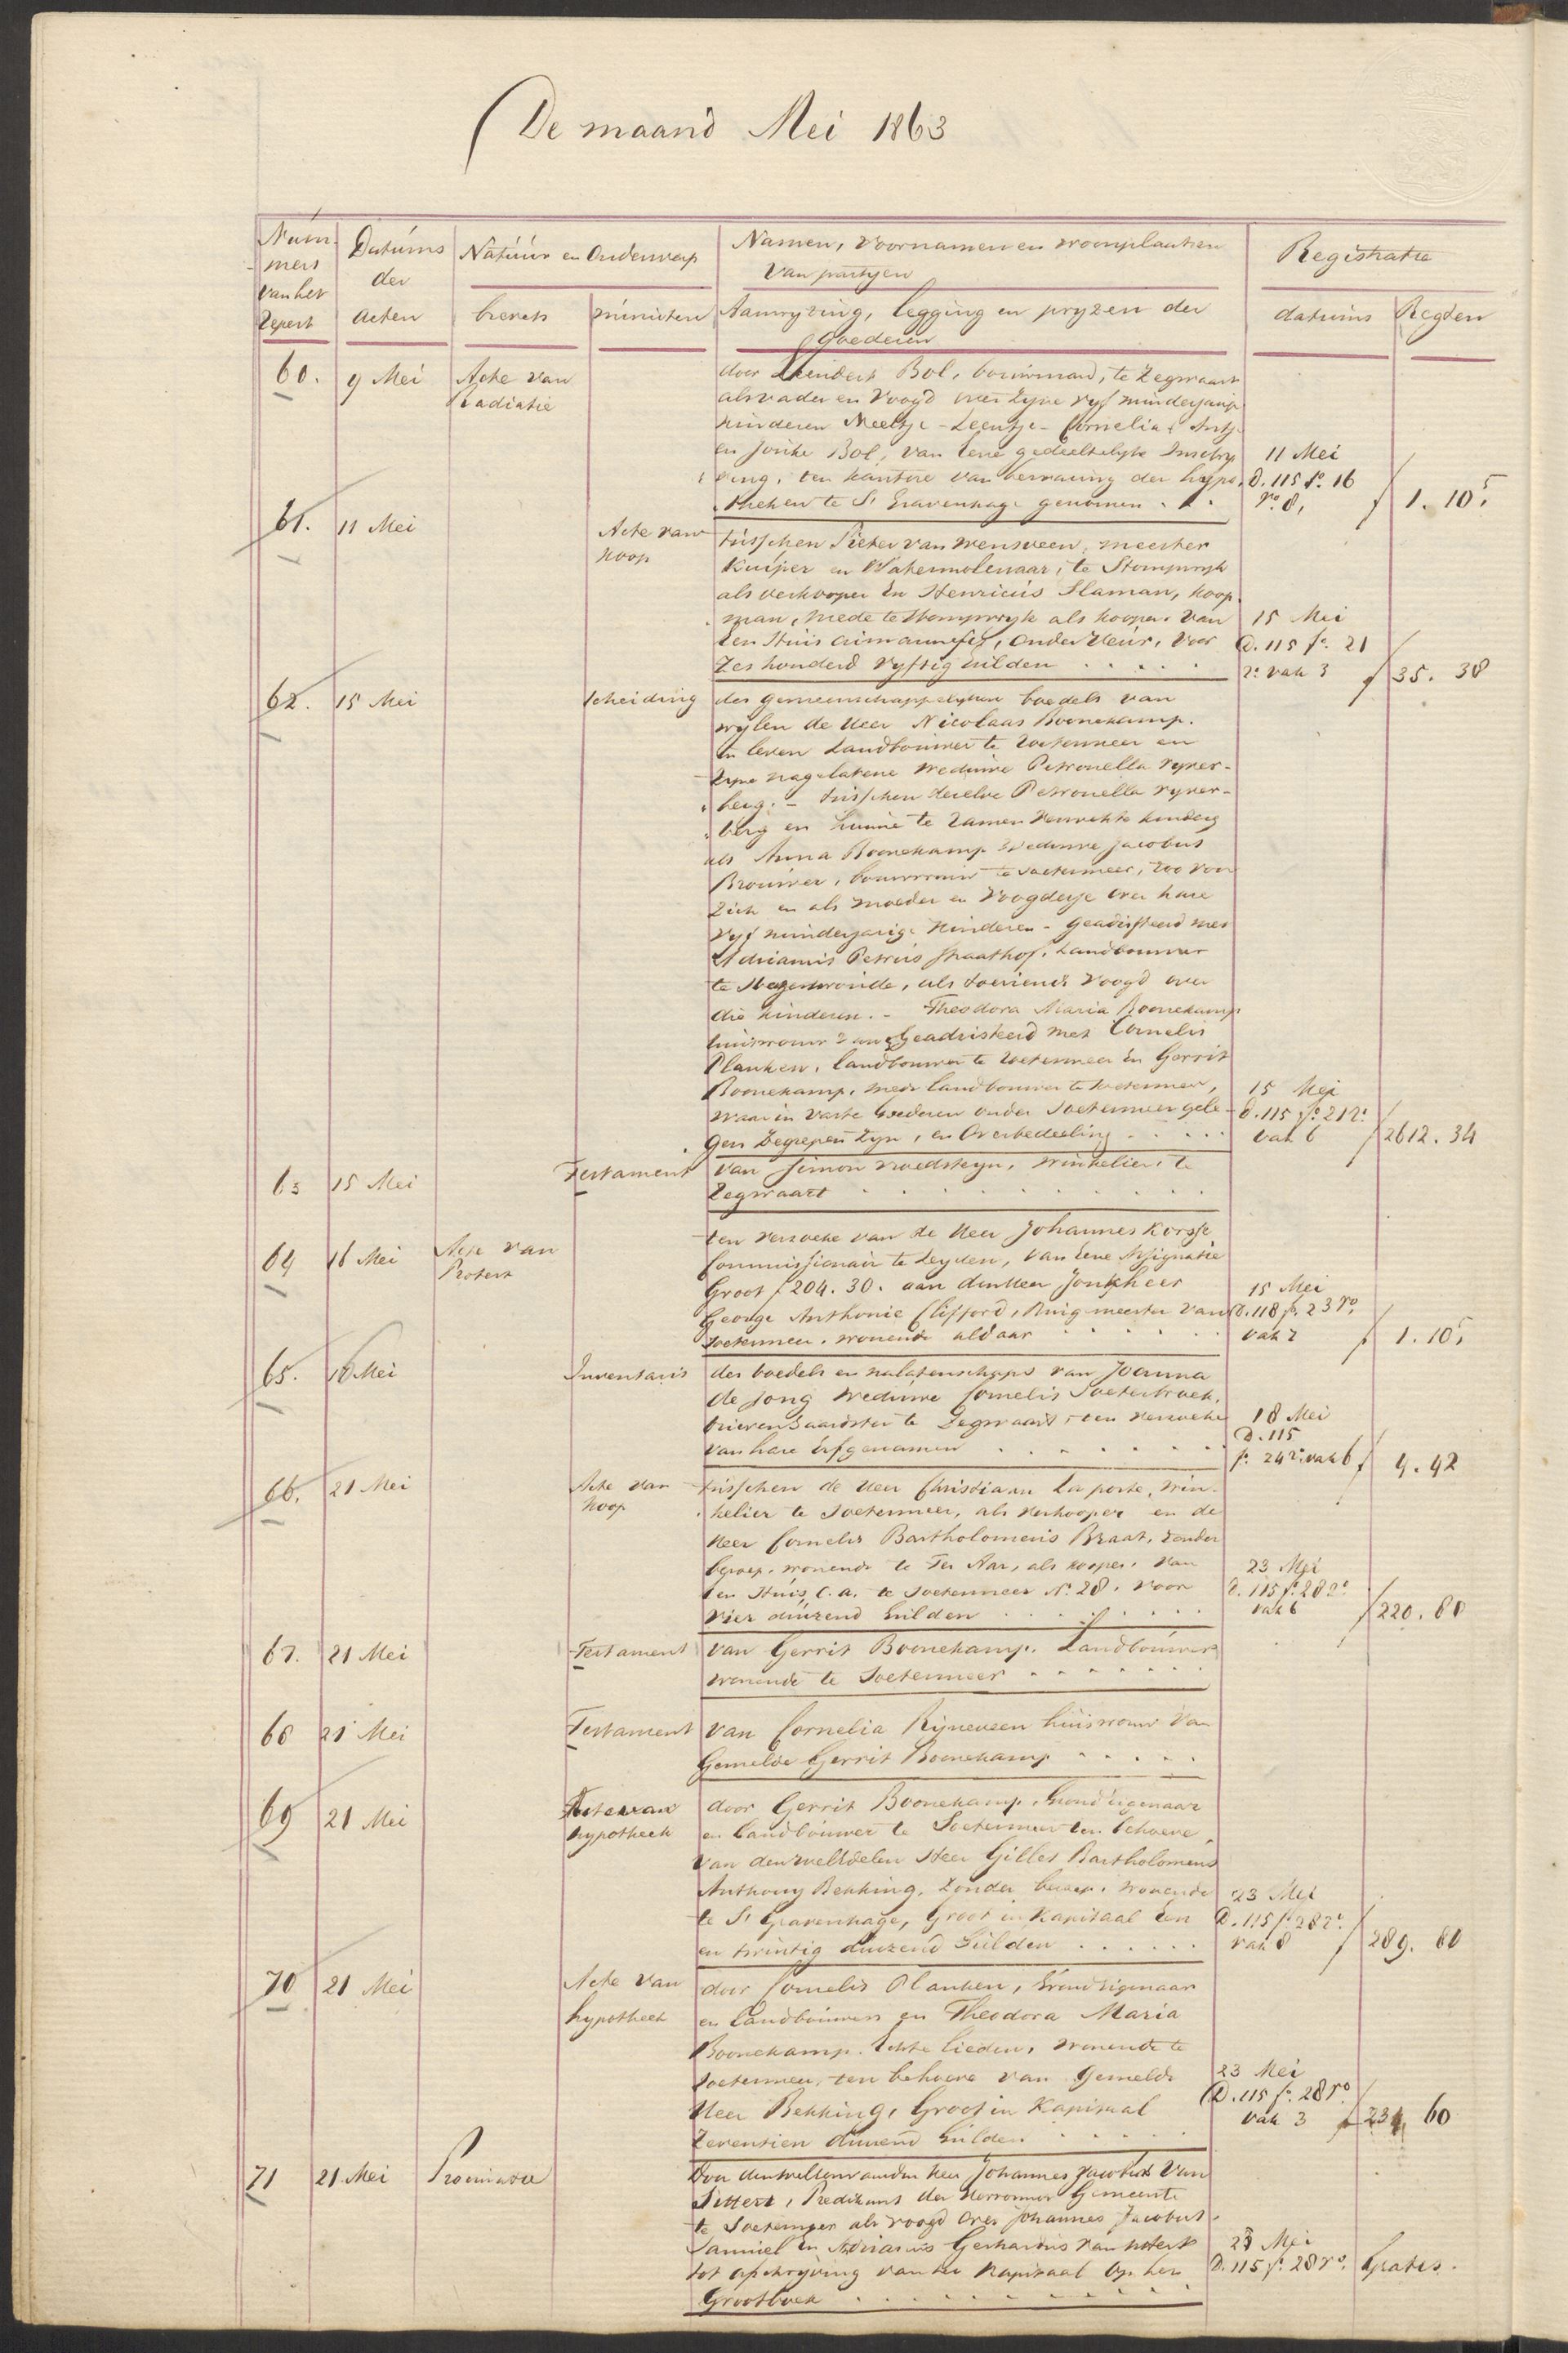 De maand Mei 1863
Num-
mers
van het
Repert
Datums
der
acten
Natuur en Onderwerp
brevets
minuten
Namen, voornamen en woonplaatsen
van partyen
Aanwyzing, legging en pryzen der
goederen
Registratie
datums
Regten
60.
9 Mei
Acte van
Radiatie
door Leendert Bol, bouwman, te Zegwaart
als vader en voogd over zyne vyf minderjarige
kinderen Neeltje - Leentje - Cornelia, Antje
en Jonke Bol, van eene gedeeltelyke inschry
ving, ten kantore van bewaring der hypo,
theken te S' Gravenhage genomen . . .
11 Mei
D. 115 fo. 16
ro. 8,
f 1. 10 5
61.
11 Mei
Acte van
koop
tusschen Pieter van Wensveen, meester
kuiper en Watermolenaar, te Stompwyk
als verkooper en Henricus Slaman, koop
man, mede te Stompwyk als kooper, van
een Huis aimannesses, onder Veur, voor
Zes honderd vyftig gulden . . . . .
15 Mei
D. 115 fo. 21
ro. vak 3
f 35. 38
62.
15 Mei
scheiding
des gemeenschappelyken boedels van
wylen de Heer Nicolaas Boonekamp.
in leven Landbouwer te Zoetermeer en
zyne nagelatene weduwe Petronella Ryner-
berg. - tusschen dezelve Petronella ryner-
berg en hunne te zamen verwekte kinders
als Anna Boonekamp weduwe Jacobus
Brouwer, bouwvrouw te Zoetermeer, zoo voor
zich en als moeder en voogdesse over hare
vyf minderjarige kinderen - geadsisteerd met
Adrianus Petrus Straathof, Landbouwer
te Hazerswoude, als toeziende voogd over
die kinderen. - Theodora Maria Boonekamp
huisvrouw van & Geadsisteerd met Cornelis
Planken, landbouwer te Zoetermeer en Gerrit
Boonekamp, mede landbouwer te Zoetermeer,
waarin vaste goederen onder Soetermeer gele-
gen begrepen zyn, en Overbedeeling . . . . .
15 Mei
D. 115 fo. 21 ro.
vak 6
f 2612. 34
63
15 Mei
Testament
van Simon Noedsteyn, winkelier, te
Zegwaart . . . . . . . . . .
64
16 Mei
Acte van
Protest
ten verzoeke van de Heer Johannes Korsse
Commissionair te Leyden, van eene Assignatie
Groot f 204. 30. aan den Heer Jonkheer
George Anthonie Clifford, Burgmeester van
Soetermeer, wonende aldaar . . . . . .
15 Mei
D. 118 fo. 23 ro.
vak 7
f 1. 10 5
65.
16 Mei
Inventaris
des boedels en nalatenschaps van Joanna
de Jong weduwe Cornelis Soeterbroek,
brievengaardster te Zegwaart, ten verzoeke
van hare Erfgenamen . . . . . .
18 Mei
D. 115
fo. 24 ro. vak 6
f 4. 42
66.
21 Mei
Acte van
koop
tusschen de Heer Christiaan La porte, win-
kelier te Soetermeer, als verkooper en de
Heer Cornelis Bartholomeus Braat, zonder
beroep, wonende te Ter Aar, als kooper, van
een Huis c.a. te Soetermeer No. 28. voor
vier duizend Gulden . . . . . .
23 Mei
D. 115 fo. 28 ro.
vak 6
f 220. 80
67.
21 Mei
Testament
van Gerrit Boonekamp, Landbouwer
wonende te Soetermeer . . . . . . .
68
21 Mei
Testament
van Cornelia Rijneveen huisvrouw van
Gemelde Gerrit Boonekamp . . . . .
69
21 Mei
Acte van
hypotheek
door Gerrit Boonekamp, Grondeigenaar
en Landbouwer te Soetermeer ten behoeve
van den weledelen Heer Gilles Bartholomeus
Anthony Bekking, zonder beroep, wonende
te S' Gravenhage, Groot in Kapitaal een
en twintig duizend Gulden . . . . . .
23 Mei
D. 115 fo. 28 ro.
vak 8
f 289. 80
70
21 Mei
Acte van
hypotheek
door Cornelis Planken, Grondeigenaar
en landbouwer en Theodora Maria
Boonekamp, Echte lieden, wonende te
Soetermeer, ten behoeve van gemelde
Heer Bekking, Groot in Kapitaal
Zeventien duizend Gulden . . . . .
23 Mei
D. 115 fo. 28 ro
vak 3
f 234 60
71
21 Mei
Procuratie
Door den weleerwaarden heer Johannes Jacobus van
Sittert, Predikant der Hervormde Gemeente
te Soetermeer als voogd over Johannes Jacobus
Samuel en Adrianus Gerhardus van Sittert
tot afschryving van een Kapitaal op het
Grootboek . . . . . . . .
23 Mei
D. 115 fo. 28 ro.
Gratis.